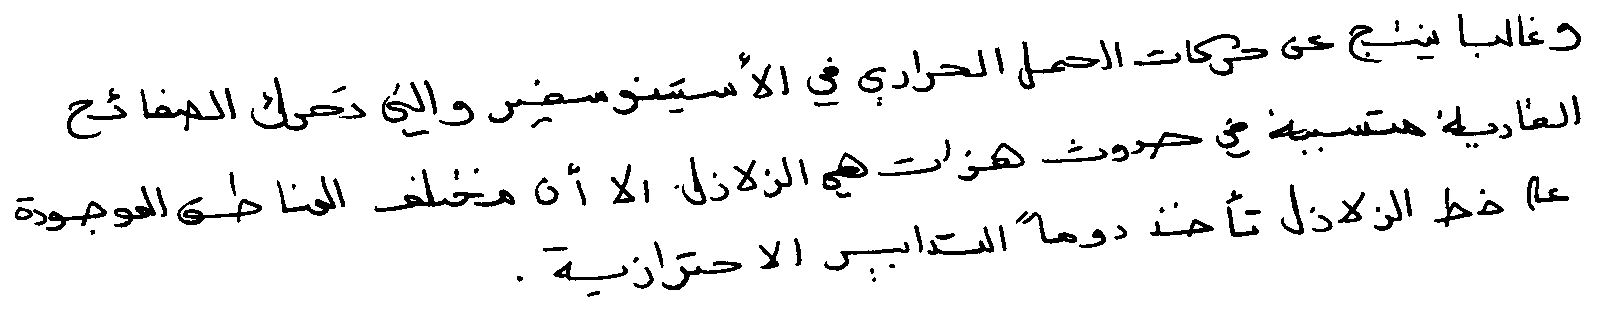 وغالبا ينتج عن حركات الحمل الحراري في الأستينوسفير والتي تحرك الصفائح
القارية متسببة في حدوث هزات هي الزلازل الا أن مختلف المناطق الموجودة
على خط الزلازل تأخذ دوماً التدابير الاحترازية .